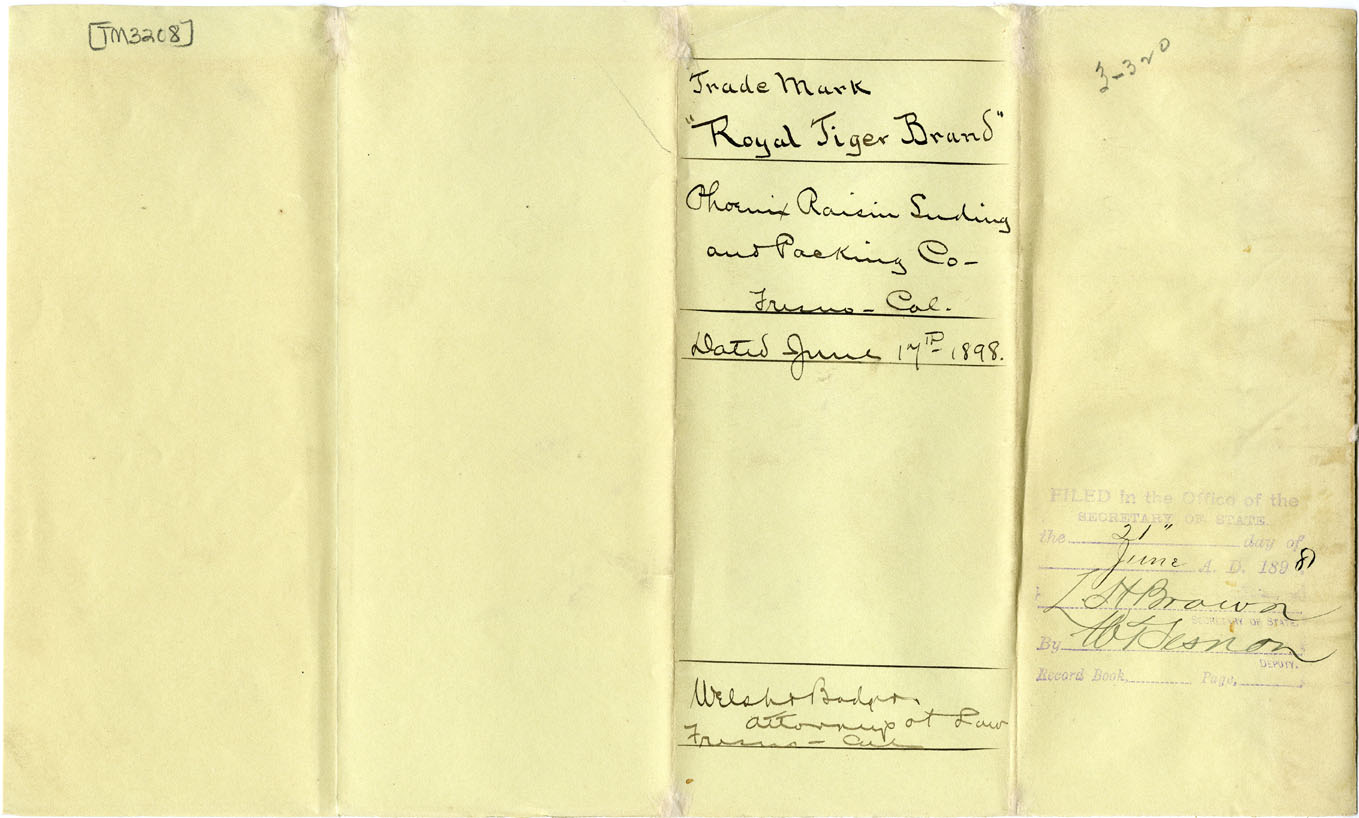 [TM3208]
Trade Mark
"Royal Tiger Brand"
Phoenix Raisin Seeding
and Packing Co-
Fresno - Cal.
Dated June 17th 1898.
Welsh & Badger.
Attorneys at Law
Fresno - Cal
3-320
FILED in the Office of the
SECRETARY OF STATE.
the 21" day of
June A. D. 1898
L H Brown
SECRETARY OF STATE.
By
DEPUTY.
Record Book, Page,